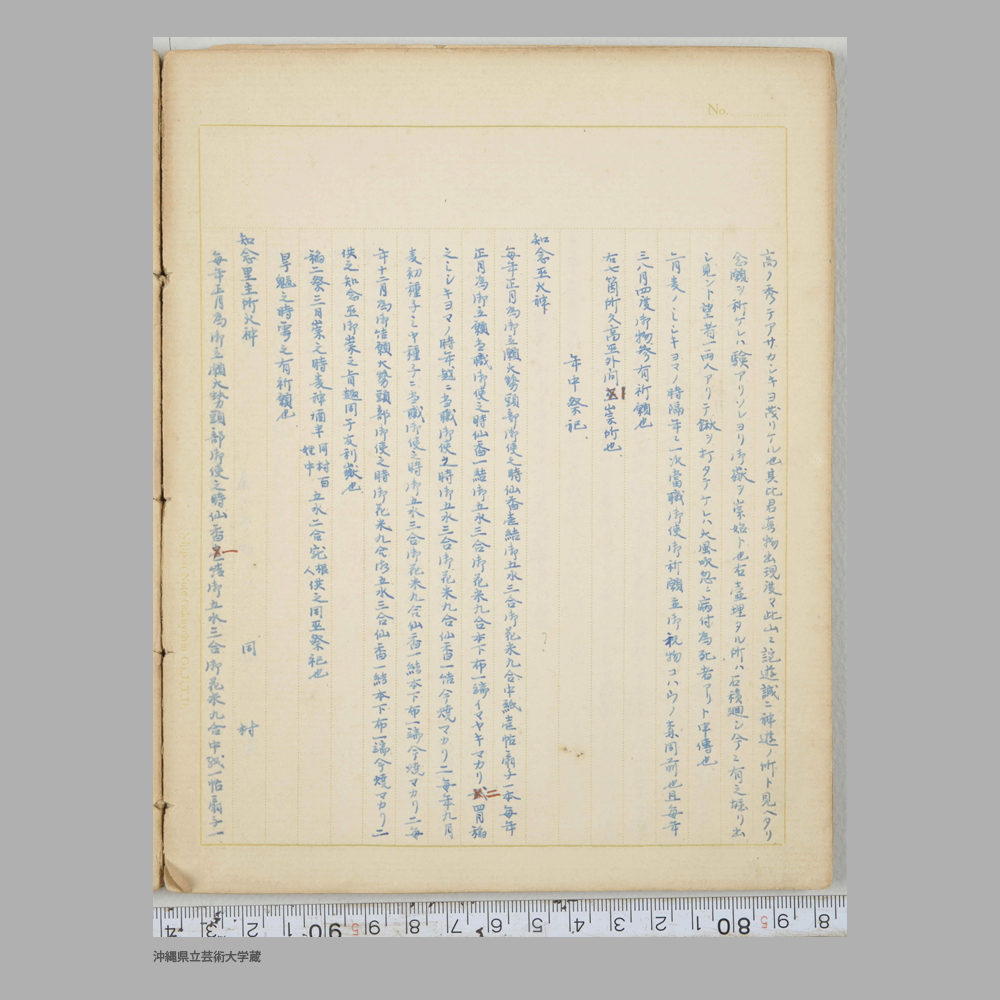 高ク秀テアサカシキヨ茂リケル也其比君真物出現没マ此山ニ託遊誠ニ神遊ノ所ト見ヘタリ
念願ヲ祈ケレハ験アリソレヨリ御嶽ヲ崇始ト也右壺埋タル所ハ石積廻シ今ニ有之堀リ出
シ見ント望者一両人アリテ鍬ヲ打タテケレハ大風吹忽ニ病付為死者アリト申傳也
二月麦ノミシキヨマノ時隔年ニ一次當職御使御祈願並御祝物コハウノ森同前也且毎年
三八月四度御物参有祈願也
右七箇所久高巫外間巫崇所也
年中祭祀
知念巫火神
毎年正月為御立願大勢頭部御使之時仙香壱結御五水三合御花米九合中紙壱帖扇子一本毎年
正月為御立願當職御使之時仙香一結御五水三合御花米九合本下布一端イマヤキマカリ二四月稲
之ミシキヨマノ時年越ニ當職御使之時御五水三合御花米九合仙香一結今焼マカリ二毎年九月
麦初種子ミヤ種子ニ当職御使之時御五水三合御花米九合仙香一結本下布一端今焼マカリ二毎
年十二月為御結願大勢頭部御使之時御花米九合御五水三合仙香一結本下布一端今焼マカリ二
供之知念巫御崇之旨趣同于友利嶽也
稲二祭三日崇之時麦神酒半同村百姓中五水二合宛根人供之同巫祭祀也
旱魃之時雩之有祈願也
知念里主所火神
同村
毎年正月為御立願大勢頭部御使之時仙香一結御五水三合御花米九合中紙一帖扇子一
No.
沖縄県立芸術大学蔵